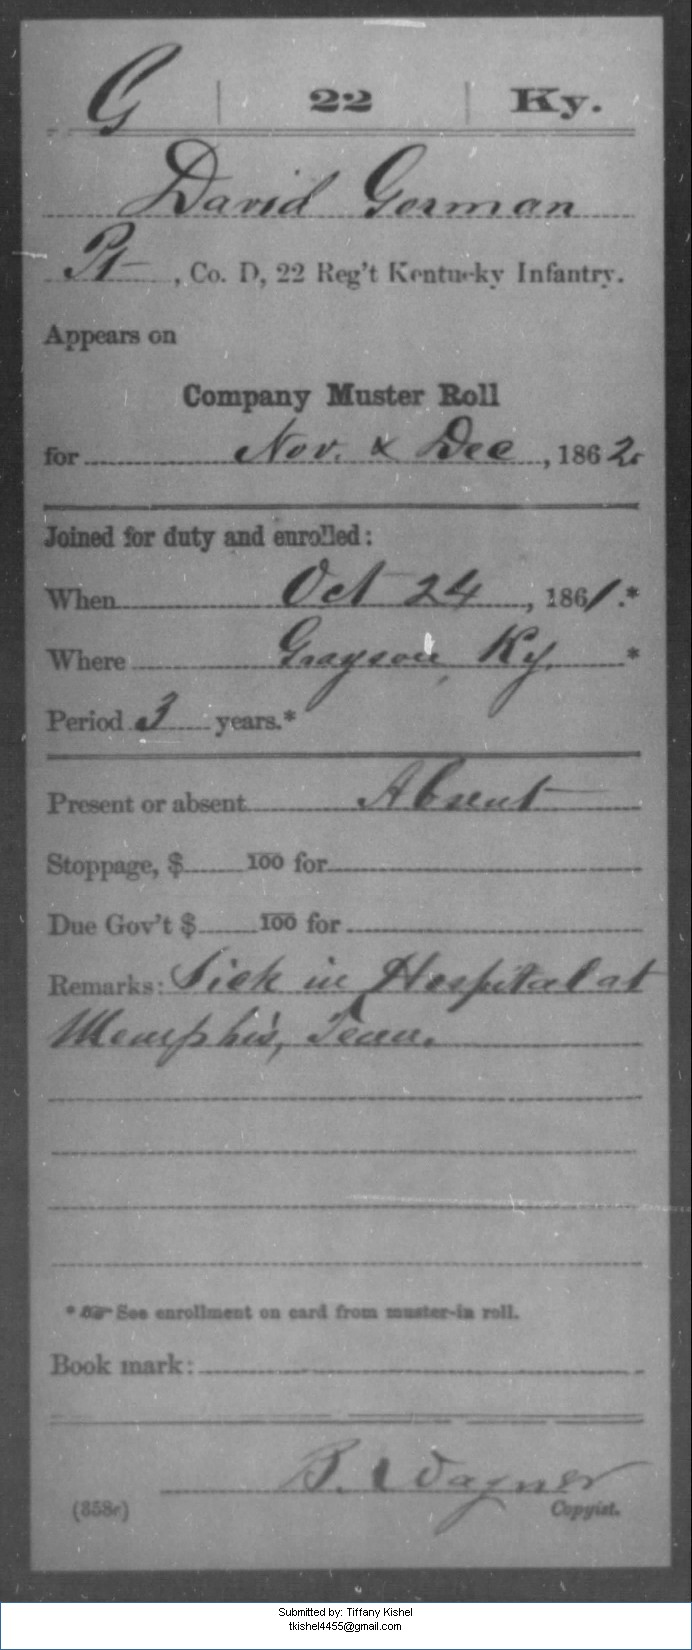 G | 22 | Ky.
David Gorman
Pt, Co. D, 22 Reg't Kentucky Infantry.
Appears on
Company Muster Roll
for Nov. & Dec, 1862.
Joined for duty and enrolled:
When Oct 24, 1861.*
Where Grayson, Ky. *
Period 3 years.*
Present or absent Absent
Stoppage, $ 100 for
Due Gov't $ 100 for
Remarks: Sick in Hospital at
Memphis, Tenn.
* ☞ See enrollment on card from muster-in roll.
Book mark:
B. Wagner
(358c) Copyist.
Submitted by: Tiffany Kishel
tkishel4455@gmail.com